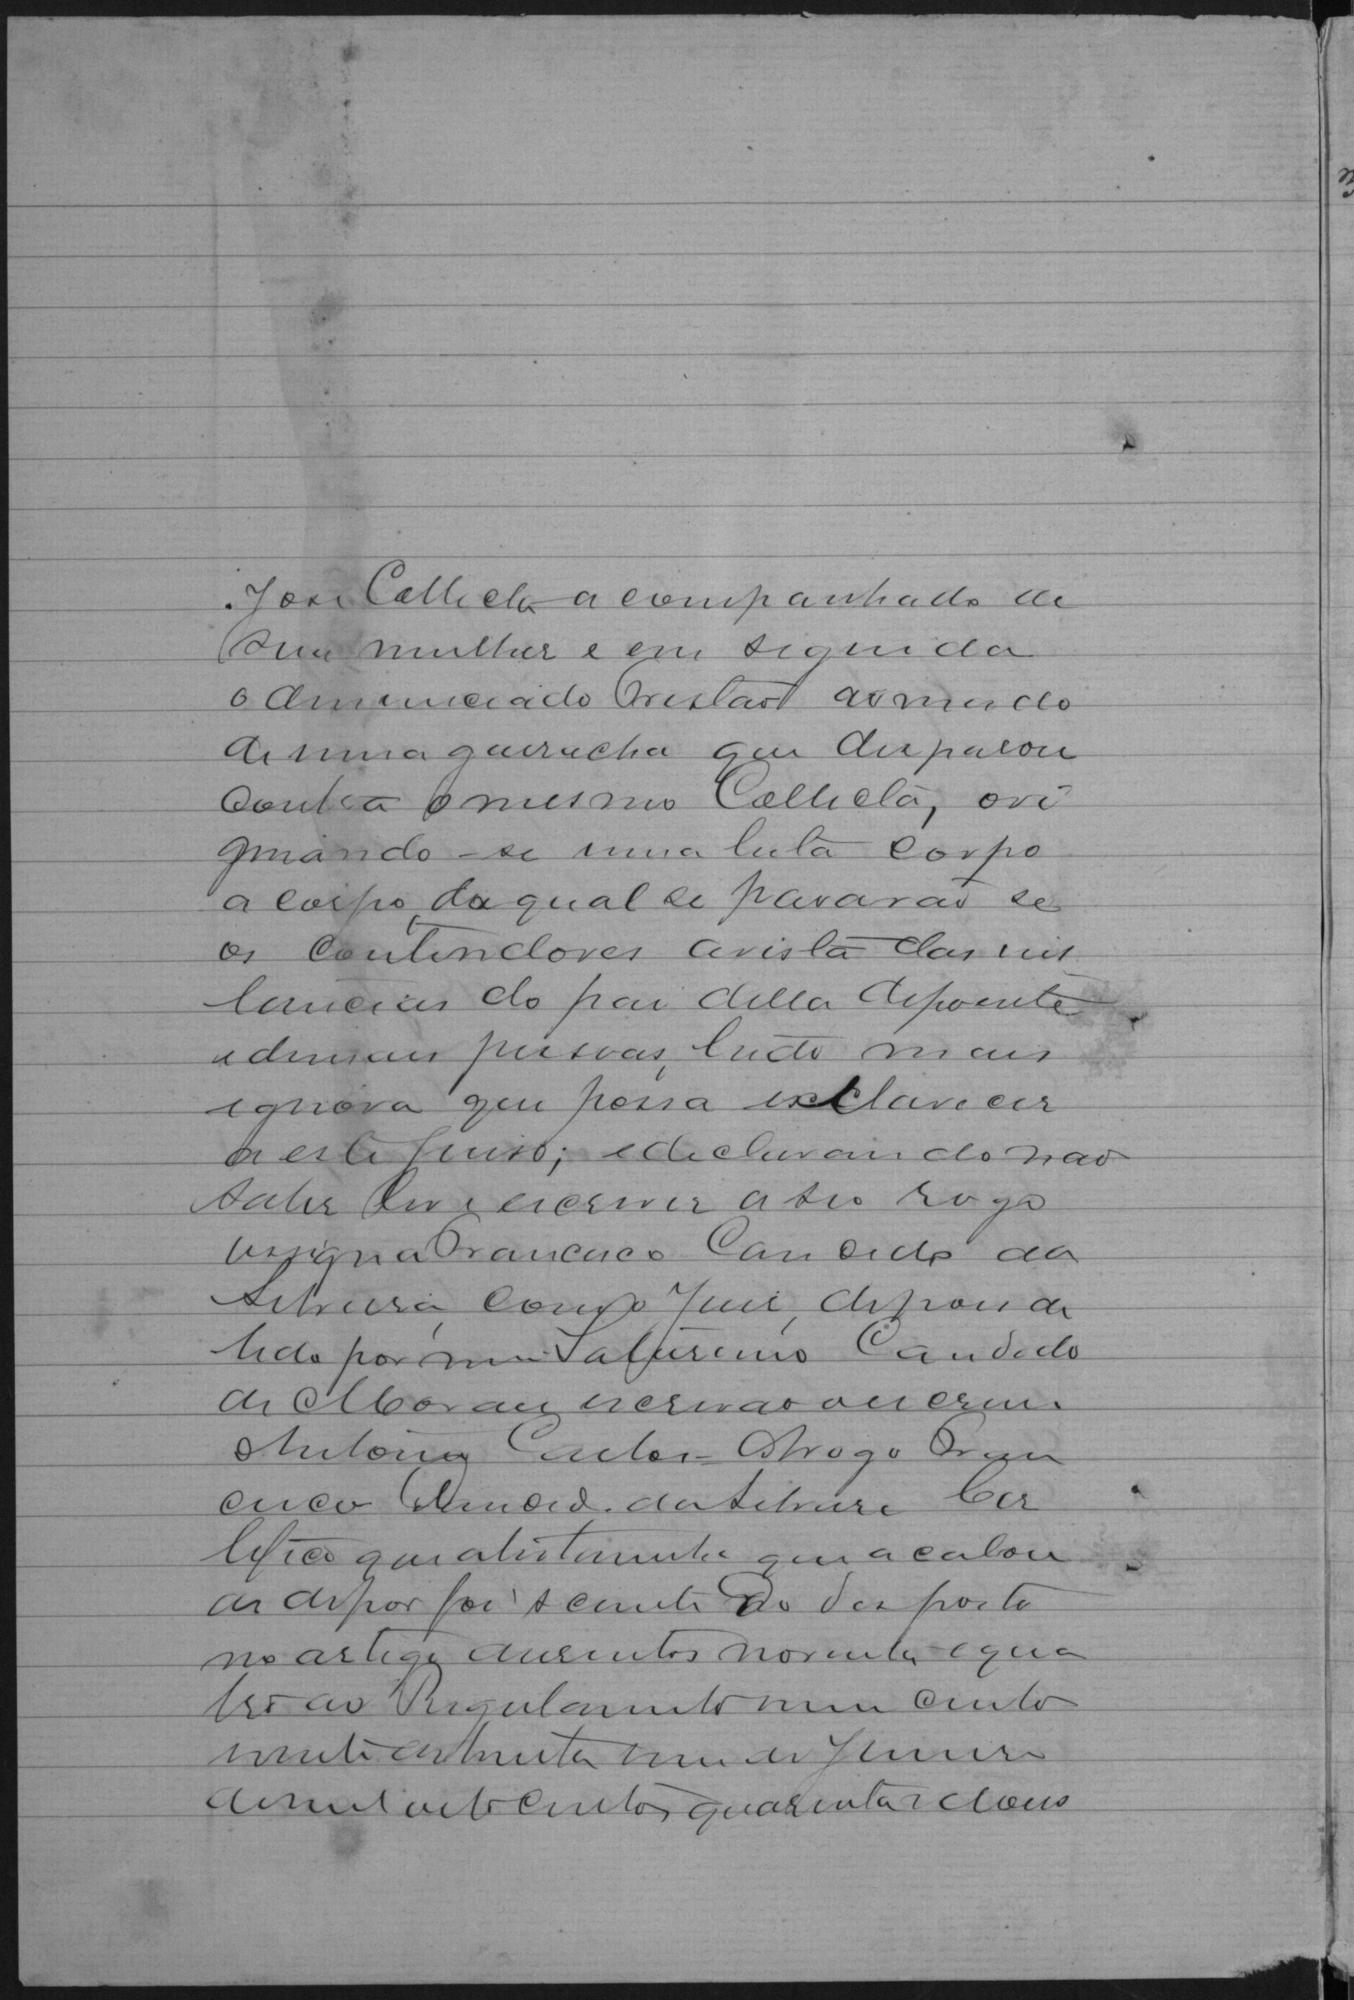 José Collecta acompanhado de
sua mulher e em seguida
o denunciado Tristão armado
de uma garrucha que disparou
contra o mesmo Collecta, ori
ginando-se uma luta corpo
a corpo, da qual se pararão se
os contendores avista das ins
tancias do pai della depoente
e demais pessoas, tudo mais
ignora que possa esclarecer
a este Juiso; e declarando não
saber ler e escrever a seo rogo
assigna Francisco Candido da
Silveira, com o Juiz, depois de
lido por mim Saturnino Candido
de Moraes escrivão o escrevi.
Antonio Arogo Fran
cisco Candido da Silveira Cer
tifico que a testemunha que acabou
de depor foi scientedo disposto
no artigo dusentos noventa e qua
tro do Regulamento num cento
vinte de trinta um de Janeiro
de mil oito centos quarenta e dous